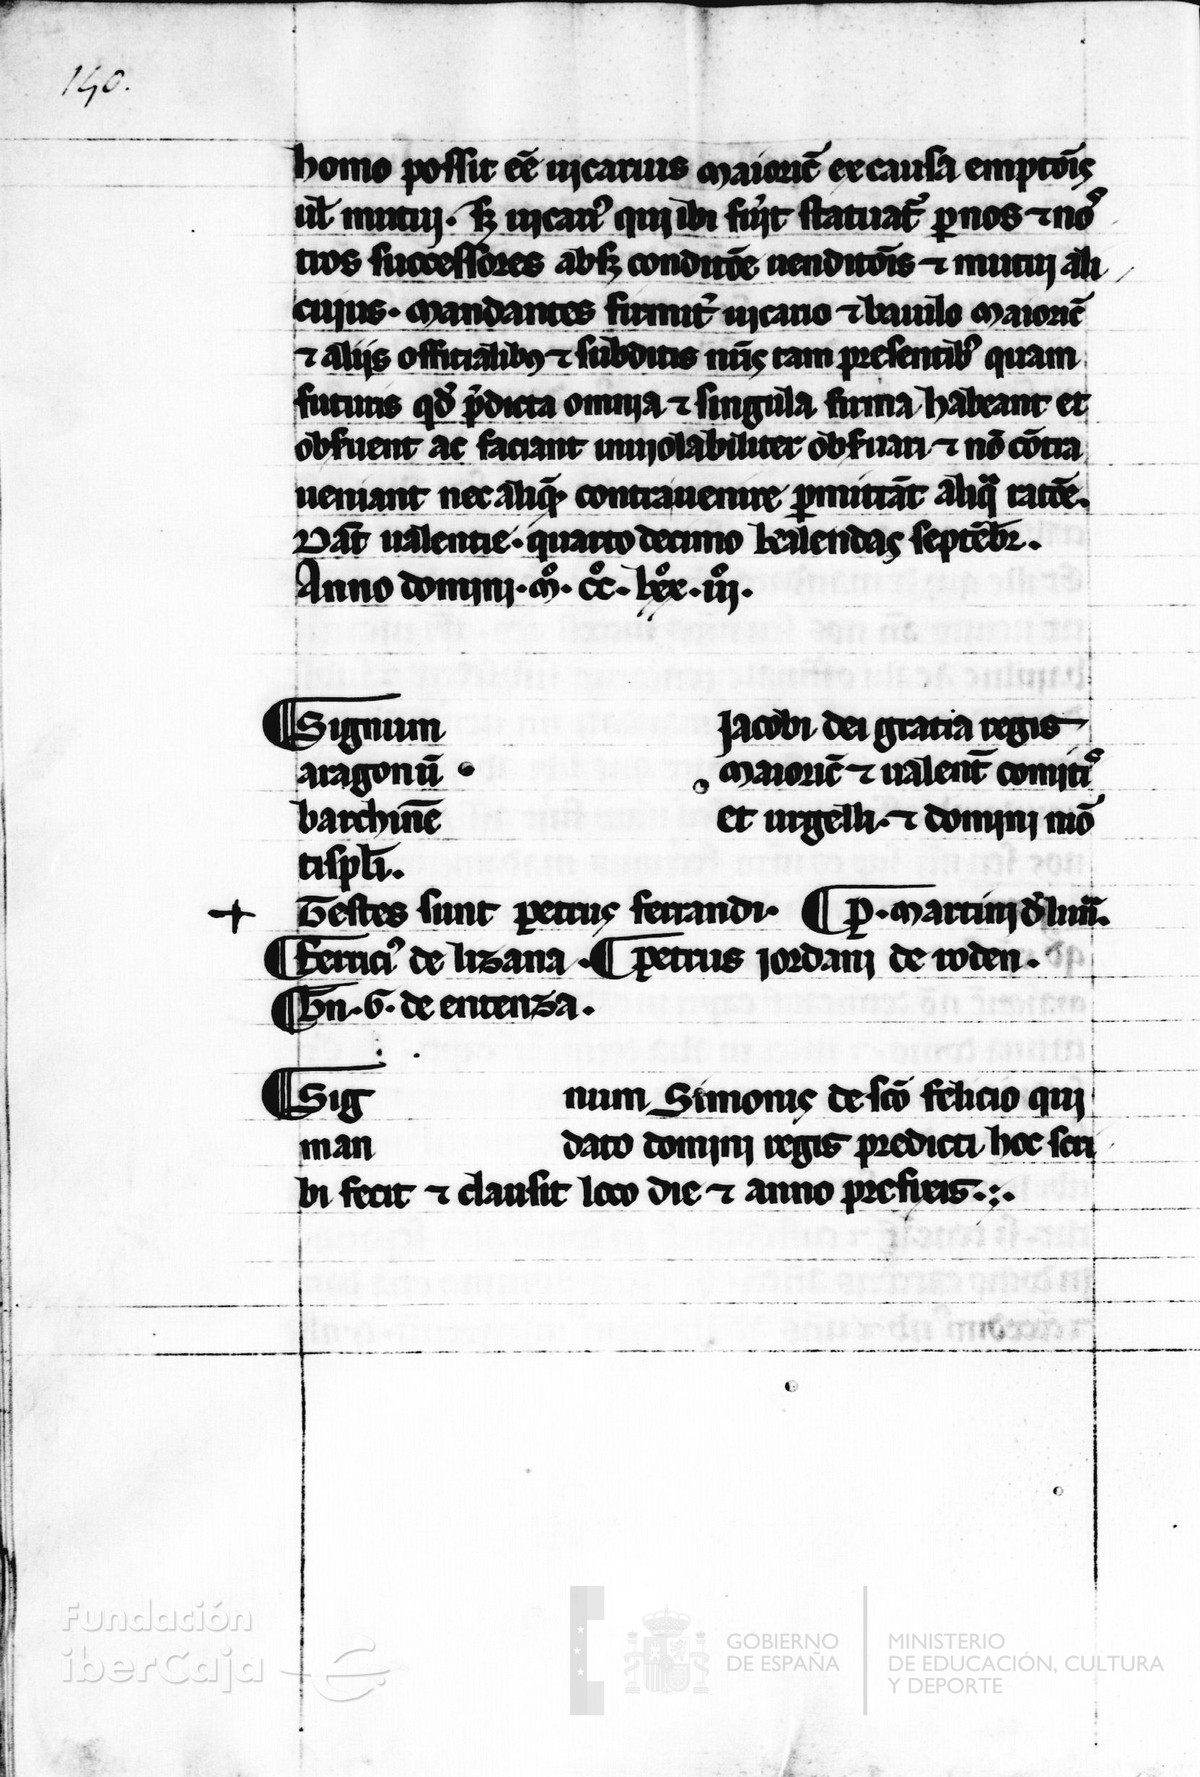 140.
homo possit eē uicarius maioric̄ ex causa emptōis
ul̄ mutui. sꝫ uicari⁹ qui ibi fu̓it statuat᷑ ꝑ nos ⁊ nos̄
tros successores absqꝫ conditōe uenditōis ⁊ mutui ali
cuius. mandantes firmit̓ uicario ⁊ baiulo maioric̄
⁊ alijs officialibꝫ ⁊ subditis nr̄is tam presentibꝫ quam
futuris qd̓ p̄dicta omnia ⁊ singula firma habeant et
obs̓uent ac faciant inuiolabiliter obs̓uari ⁊ nō cōtra
ueniant nec aliqͥ contrauenire ꝑmittāt aliqᷓ ratōe.
Dat̄ ualentie. quarto decimo kalendas septēbr̄.
Anno domini. m̊. cc̊. lxx̊. iiı̊.
¶ Signum Jacobi dei gratia regis
aragonū maioric̄ ⁊ ualent̄ comitis̓
barchin̄e et urgelli. ⁊ domini mō
tispl̄i.
+ Testes sunt petrus ferrandi. ¶ P. martini d̓ lun̄.
¶ Ferrici̓ de lizana. ¶ petrus jordani de roden.
¶ Bn̄. G. de entenza.
¶ Sig num Simonis de sc̄o felicio qui
man dato domini regis predicti hoc scri
bi fecit ⁊ clausit loco die ⁊ anno prefixis.:.
Fundación
iberCaja
GOBIERNO
DE ESPAÑA
MINISTERIO
DE EDUCACIÓN, CULTURA
Y DEPORTE